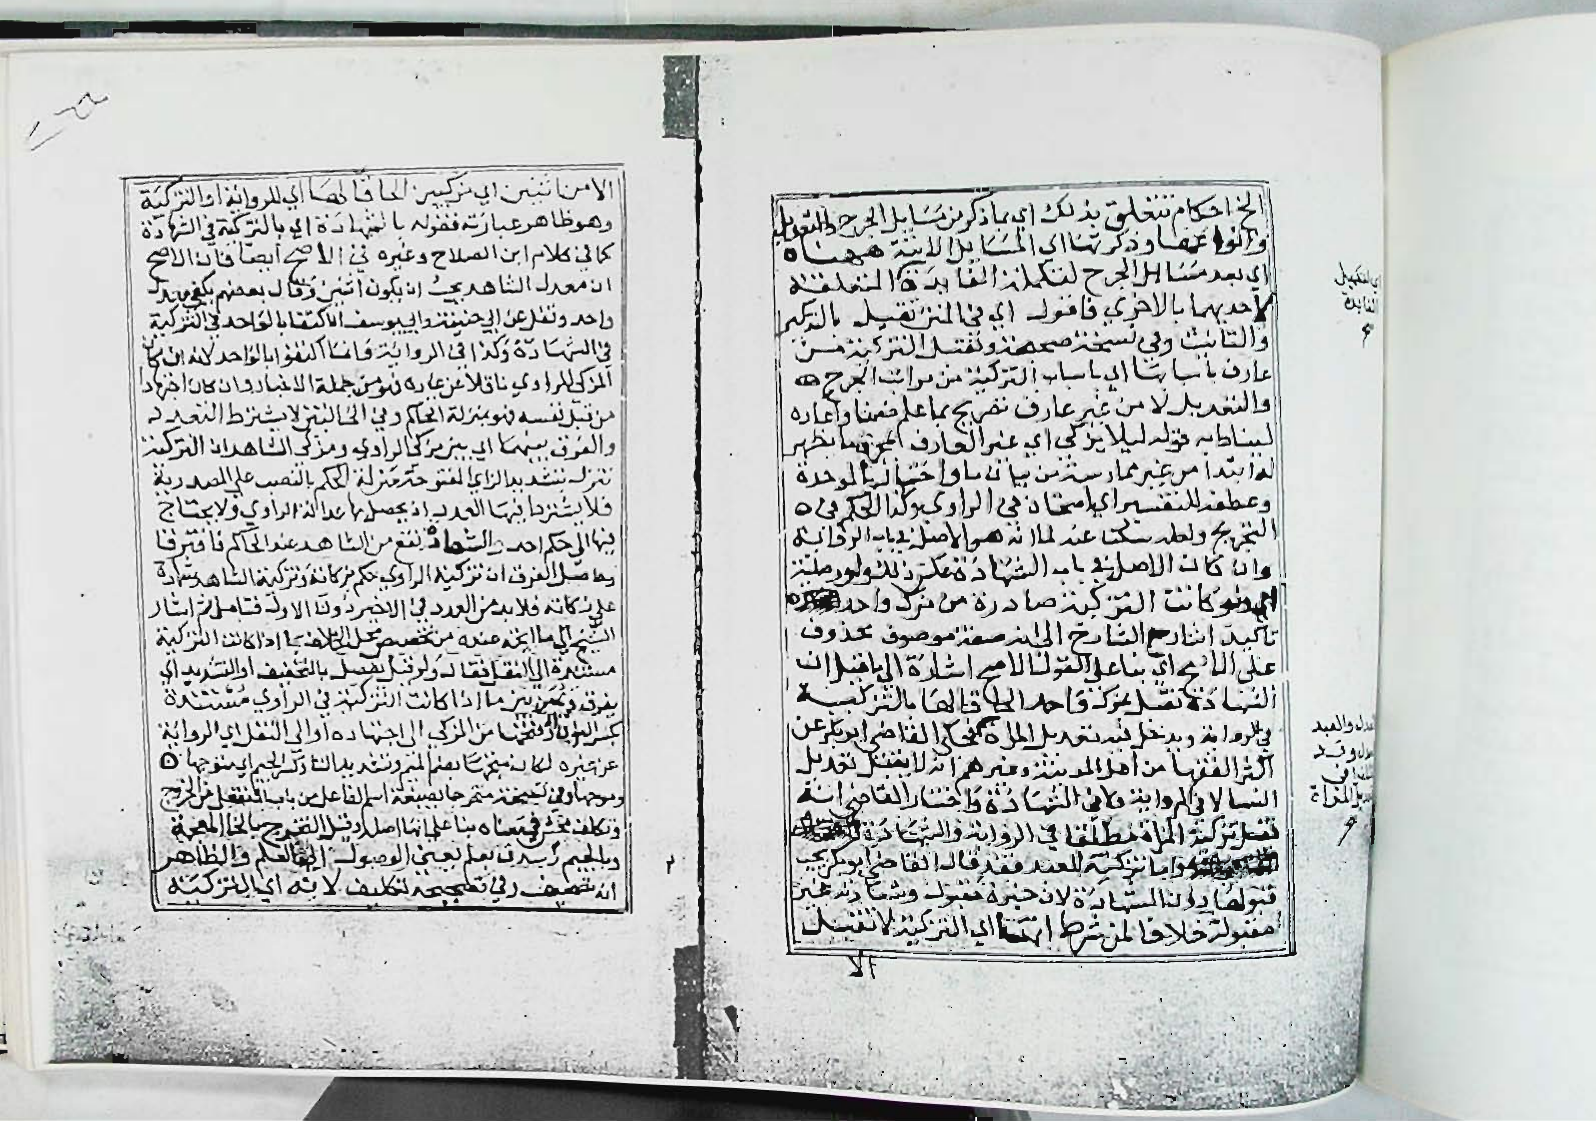 الخ احكام تتعلق بذلك اي بما ذكر من مسايل الجرح والتعديل
وانواعهما وذكرتها اي المسايل الاتية ههنا
اي بعد مسايل الجرح لتكملة الفايدة المتعلقة
لاحديهما بالاخري فاقول اي في المتن تقبل بالتذكير
والتانيث وفي نسخة صحيحة وتقبل التزكية من
عارف باسبابها اي باسباب التزكية من مراتب الجرح
والتعديل لا من غير عارف تصريح بما علم ضمنا واعاده
ليناط به قوله ليلا يزكي اي غير العارف بمجرد ما يظهر
له ابتدا من غير ممارسة من بيان ما واختبار بالموحدة
وعطفه للتفسير اي امتحان في الراوي وكذا الحكم في
التجريح ولعله سكت عنه لما انه هو الاصل في باب الرواية
وان كان الاصل في باب الشهادة عكس ذلك ولو وصلية
اي ولو كانت التزكية صادرة من مزك واحد
تاكيد اشار الشارح الي انه صفة موصوف محذوف
علي الاصح اي بنا علي القول الاصح اشارة الي ما قيل ان
الشهادة تقبل بمزك واحد الحاقا لها بالتزكية
في الرواية ويدخل فيه تعديل المراة فحكي القاضي ابو بكر عن
اكثر الفقها من اهل المدينة وغيرهم انه لا يقبل تعديل
النسا لا في الرواية ولا في الشهادة واختار القاضي انه
تقبل تزكية المراة مطلقا في الرواية والشهادة
واما تزكية العبد فقد قال القاضي ابو بكر يجب
قبولها دون الشهادة لان خبره مقبول وشهادته غير
مقبولة خلافا لمن شرط انها اي التزكية لا تقبل
الا
اي لتكميل
الفايدة
الامن اثنين اي مزكيين الحاقا لها اي للرواية او التزكية
وهو ظاهر عبارته فقوله بالشهادة اي بالتزكية في الشهادة
كما في كلام ابن الصلاح وغيره في الاصح ايضا فان الاصح
ان معدل الشاهد يجب ان يكون اثنين وقال بعضهم يكفي مزك
واحد ونقل عن ابي حنيفة وابي يوسف الاكتفا بالواحد في التزكية
في الشهادة وكذا في الرواية وانما اكتفوا بالواحد لانه ان كان
المزكي للراوي ناقلا عن غيره فهو من جملة الاخبار وان كان اجتهادا
من قبل نفسه فهو بمنزلة الحاكم وفي الحالتين لا يشترط التعدد
والفرق بينهما اي بين مزكي الراوي ومزكي الشاهد ان التزكية
تنزل بتشديد الزاي المفتوحة منزلة الحكم بالنصب علي المصدرية
فلا يشترط فيها العدد اذ يحصل بها عدالة الراوي ولا يحتاج
فيها الي حكم احد والشهادة تقع من الشاهد عند الحاكم فافترقا
وحاصل الفرق ان تزكية الراوي حكم بزكاته وتزكية الشاهد شهادة
علي زكاته فلا بد من العدد في الاخير دون الاول فتامل ثم اشار
الشيخ الي ما اتجه عنده من تخصيص محل الخلاف بما اذا كانت التزكية
مستندة الي النقل فقال ولو قيل يفصل بالتخفيف او التشديد اي
يفرق ويميز بين ما اذا كانت التزكية في الراوي مستندة
بكسر النون او فتحها من المزكي الي اجتهاده او الي النقل اي الرواية
عن غيره لكان متجها بضم الميم وتشديد التا وكسر الجيم اي متوجها
وموجها وفي نسخة متخرجا بصيغة اسم الفاعل من باب التفعل من الخروج
وتكلف محش في معناه بنا علي انها اصله وقيل التخرج بالخا المعجمة
وبالجيم
انه تصحيف وفي تصحيحه تكليف لانه اي التزكية